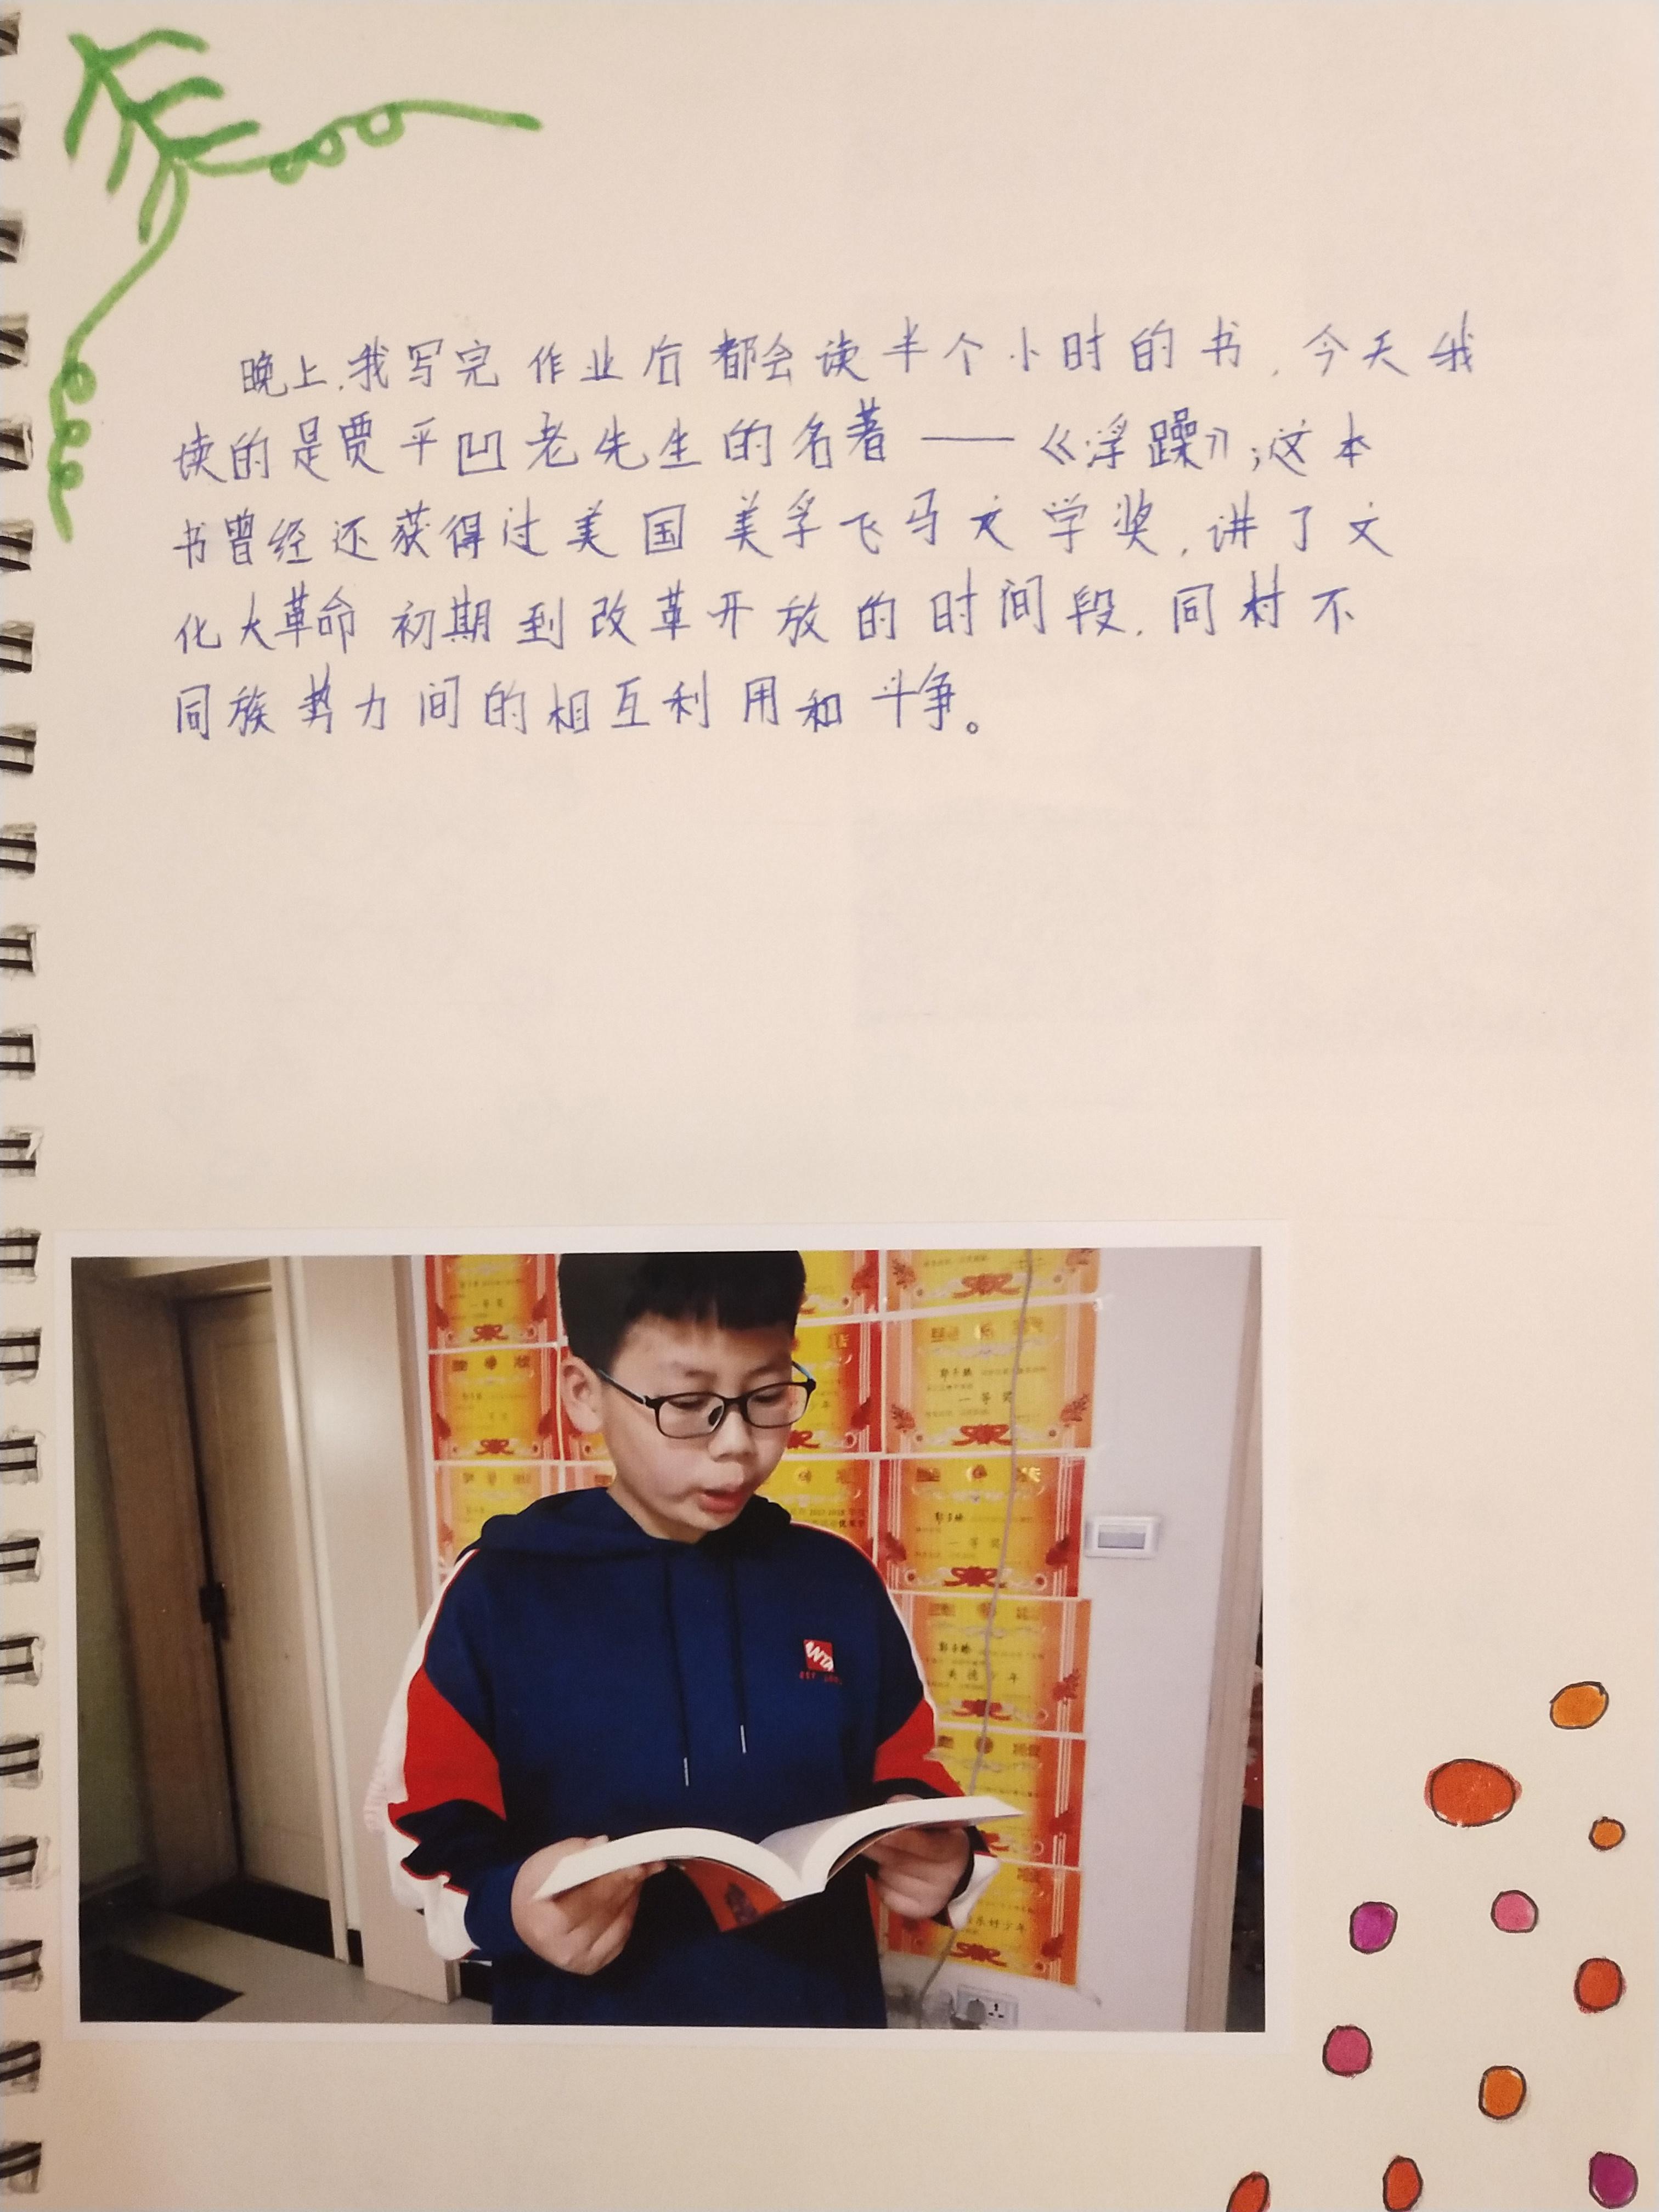 晚上,我写完作业后都会读半个小时的书,今天我
读的是贾平凹老先生的名著——《浮躁》;这本
书曾经还获得过美国美孚飞马文学奖,讲了文
化大革命初期到改革开放的时间段,同村不
同族势力间的相互利用和斗争。
一等奖
一等奖
一等奖
美德少年